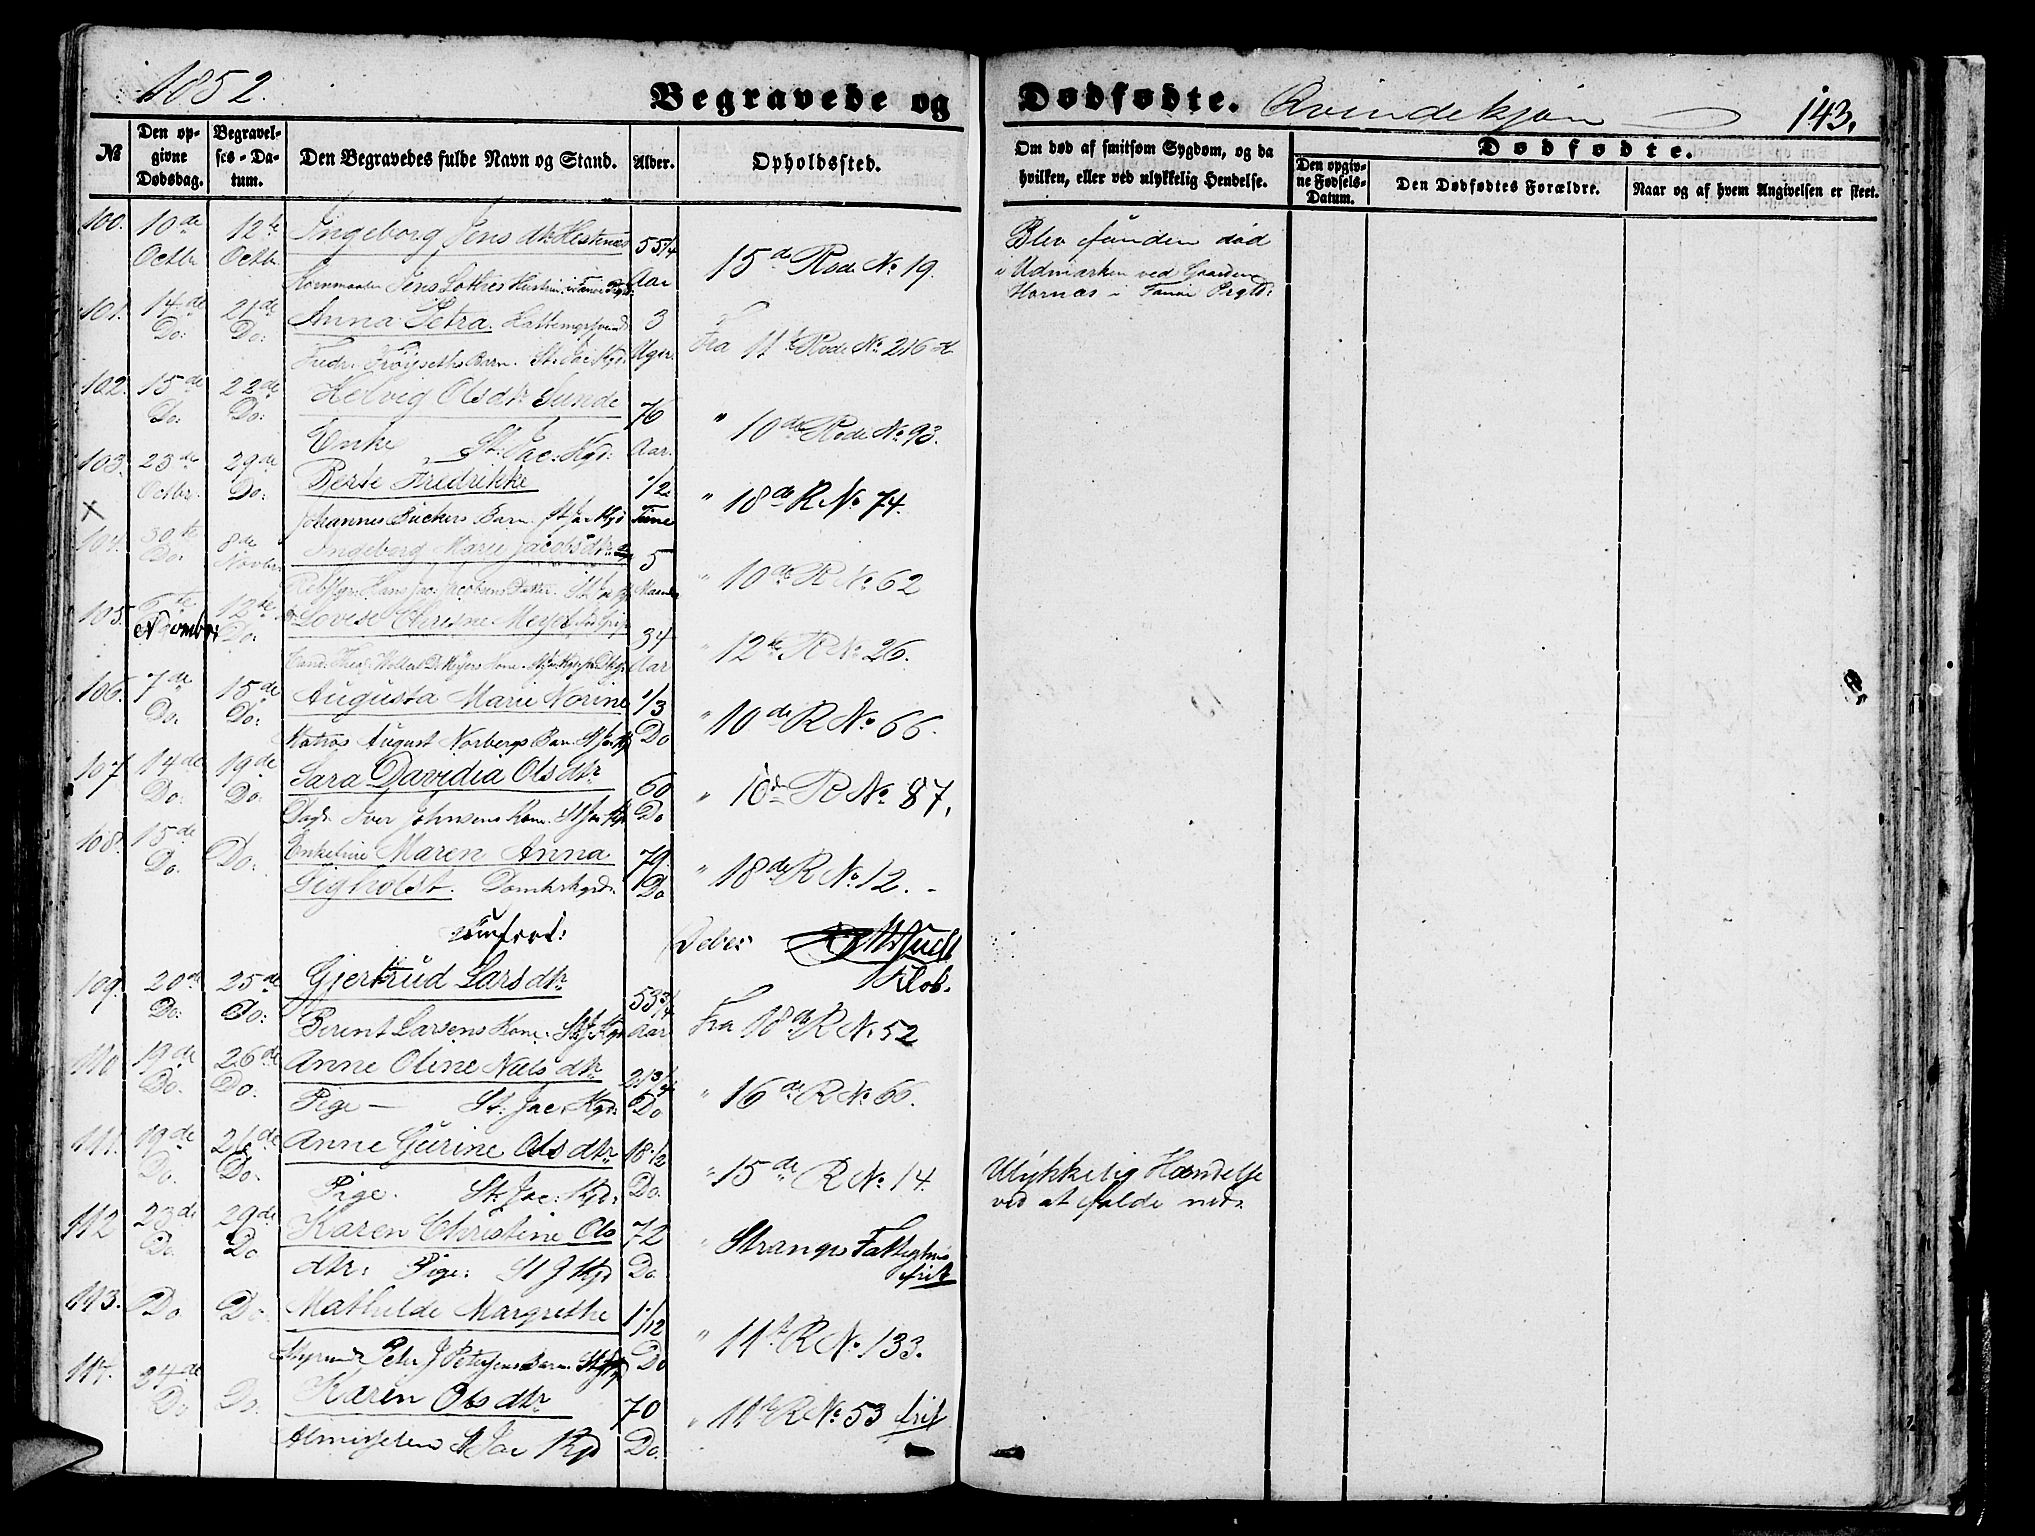 1852.
Begravede og Dødfødte. Qvindekjøn 143.
No
Den opgivne Dødsdag.
Begravelses-Datum.
Den Begravedes fulde Navn og Stand.
Alder.
Opholdssted.
Om død af smitsom Sygdom, og da hvilken, eller ved ulykkelig Hendelse.
Dødfødte.
Den opgivne Fødsels-Datum.
Den Dødfødtes Forældre.
Naar og af hvem Angivelsen er skeet.
100. 10de Octbr. 12te Octbr. Ingeborg Jensdtr. Hestnæs 55 1/4 Aar 15de Rode No 19.
Blev funden død
i Udmarken ved Gaarden
Hornæs i Fanøe Prgld:
101. 14de Do: 21de Do: Anna Petra. 3 Uger. Fra 11te Rode No. 216
Barn. St. Jac. Kgd:
102. 15de Do: 22de Do: Helvig Olsdtr Sunde 76 Aar. " 10de Rode No. 93.
Enke St: Jac: Kgd:
103. 23de Octbr. 29de Do: Berte Fredrikke 1/2 Time " 18de R No 74.
Johannes Büchers Barn. St Jac Kgd
104. 30te Do: 8de Novbr Ingeborg Marie Jacobsdtr. 5 " 10de R No 62
105. 6te Novembr: 12te Do: Lovise Christine Meyer 34 Aar " 12te R No 26.
106. 7de Do: 15de Do: Augusta Marie Norine 1/3 Do " 10de R No. 66.
Matros August Norbergs Barn. St Jac Kgd
107 14de Do: 19de Do: Sara Davidia Olsdtr 60 Do " 10de R No. 87.
Dagk. Iver Johnsens Kone. St Jac Kgd
108. 15de Do. Do: Enkefrue Maren Anna 79 Do " 18de R No. 12.
Sigholst. Domkkgrd.
109. 20de Do: 25de Do: Gjertrud Larsdtr 53 3/4 Aar Fra 18de R No 52
Berent Larsens Kone. St J. Kgd
110 19de Do: 26de Do: Anne Oline Nielsdtr. 21 3/4 Do " 16de R No. 66.
Pige — St: Jac: Kgd:
111. 19de Do. 26de Do: Anne Gurine Olsdtr 18 1/2 Do. " 15de R No. 14.
Pige. St: Jac: Kgd:
Ulykkelig Hændelse
ved at falde ned.
112 23de Do. 29de Do Karen Christine Ols 72 Do. " Stranges Fattighus
dtr: Pige: St J Kgd frit
113. Do. Do. Mathilde Margrethe 1 1/12 Do " 11te R No. 133.
Styrmd Peter J Petersens Barn.
114. 24de Do Do. Karen Olsdtr 70 Do. " 11te R No. 53 frit
Almisselem St Jac Kgd